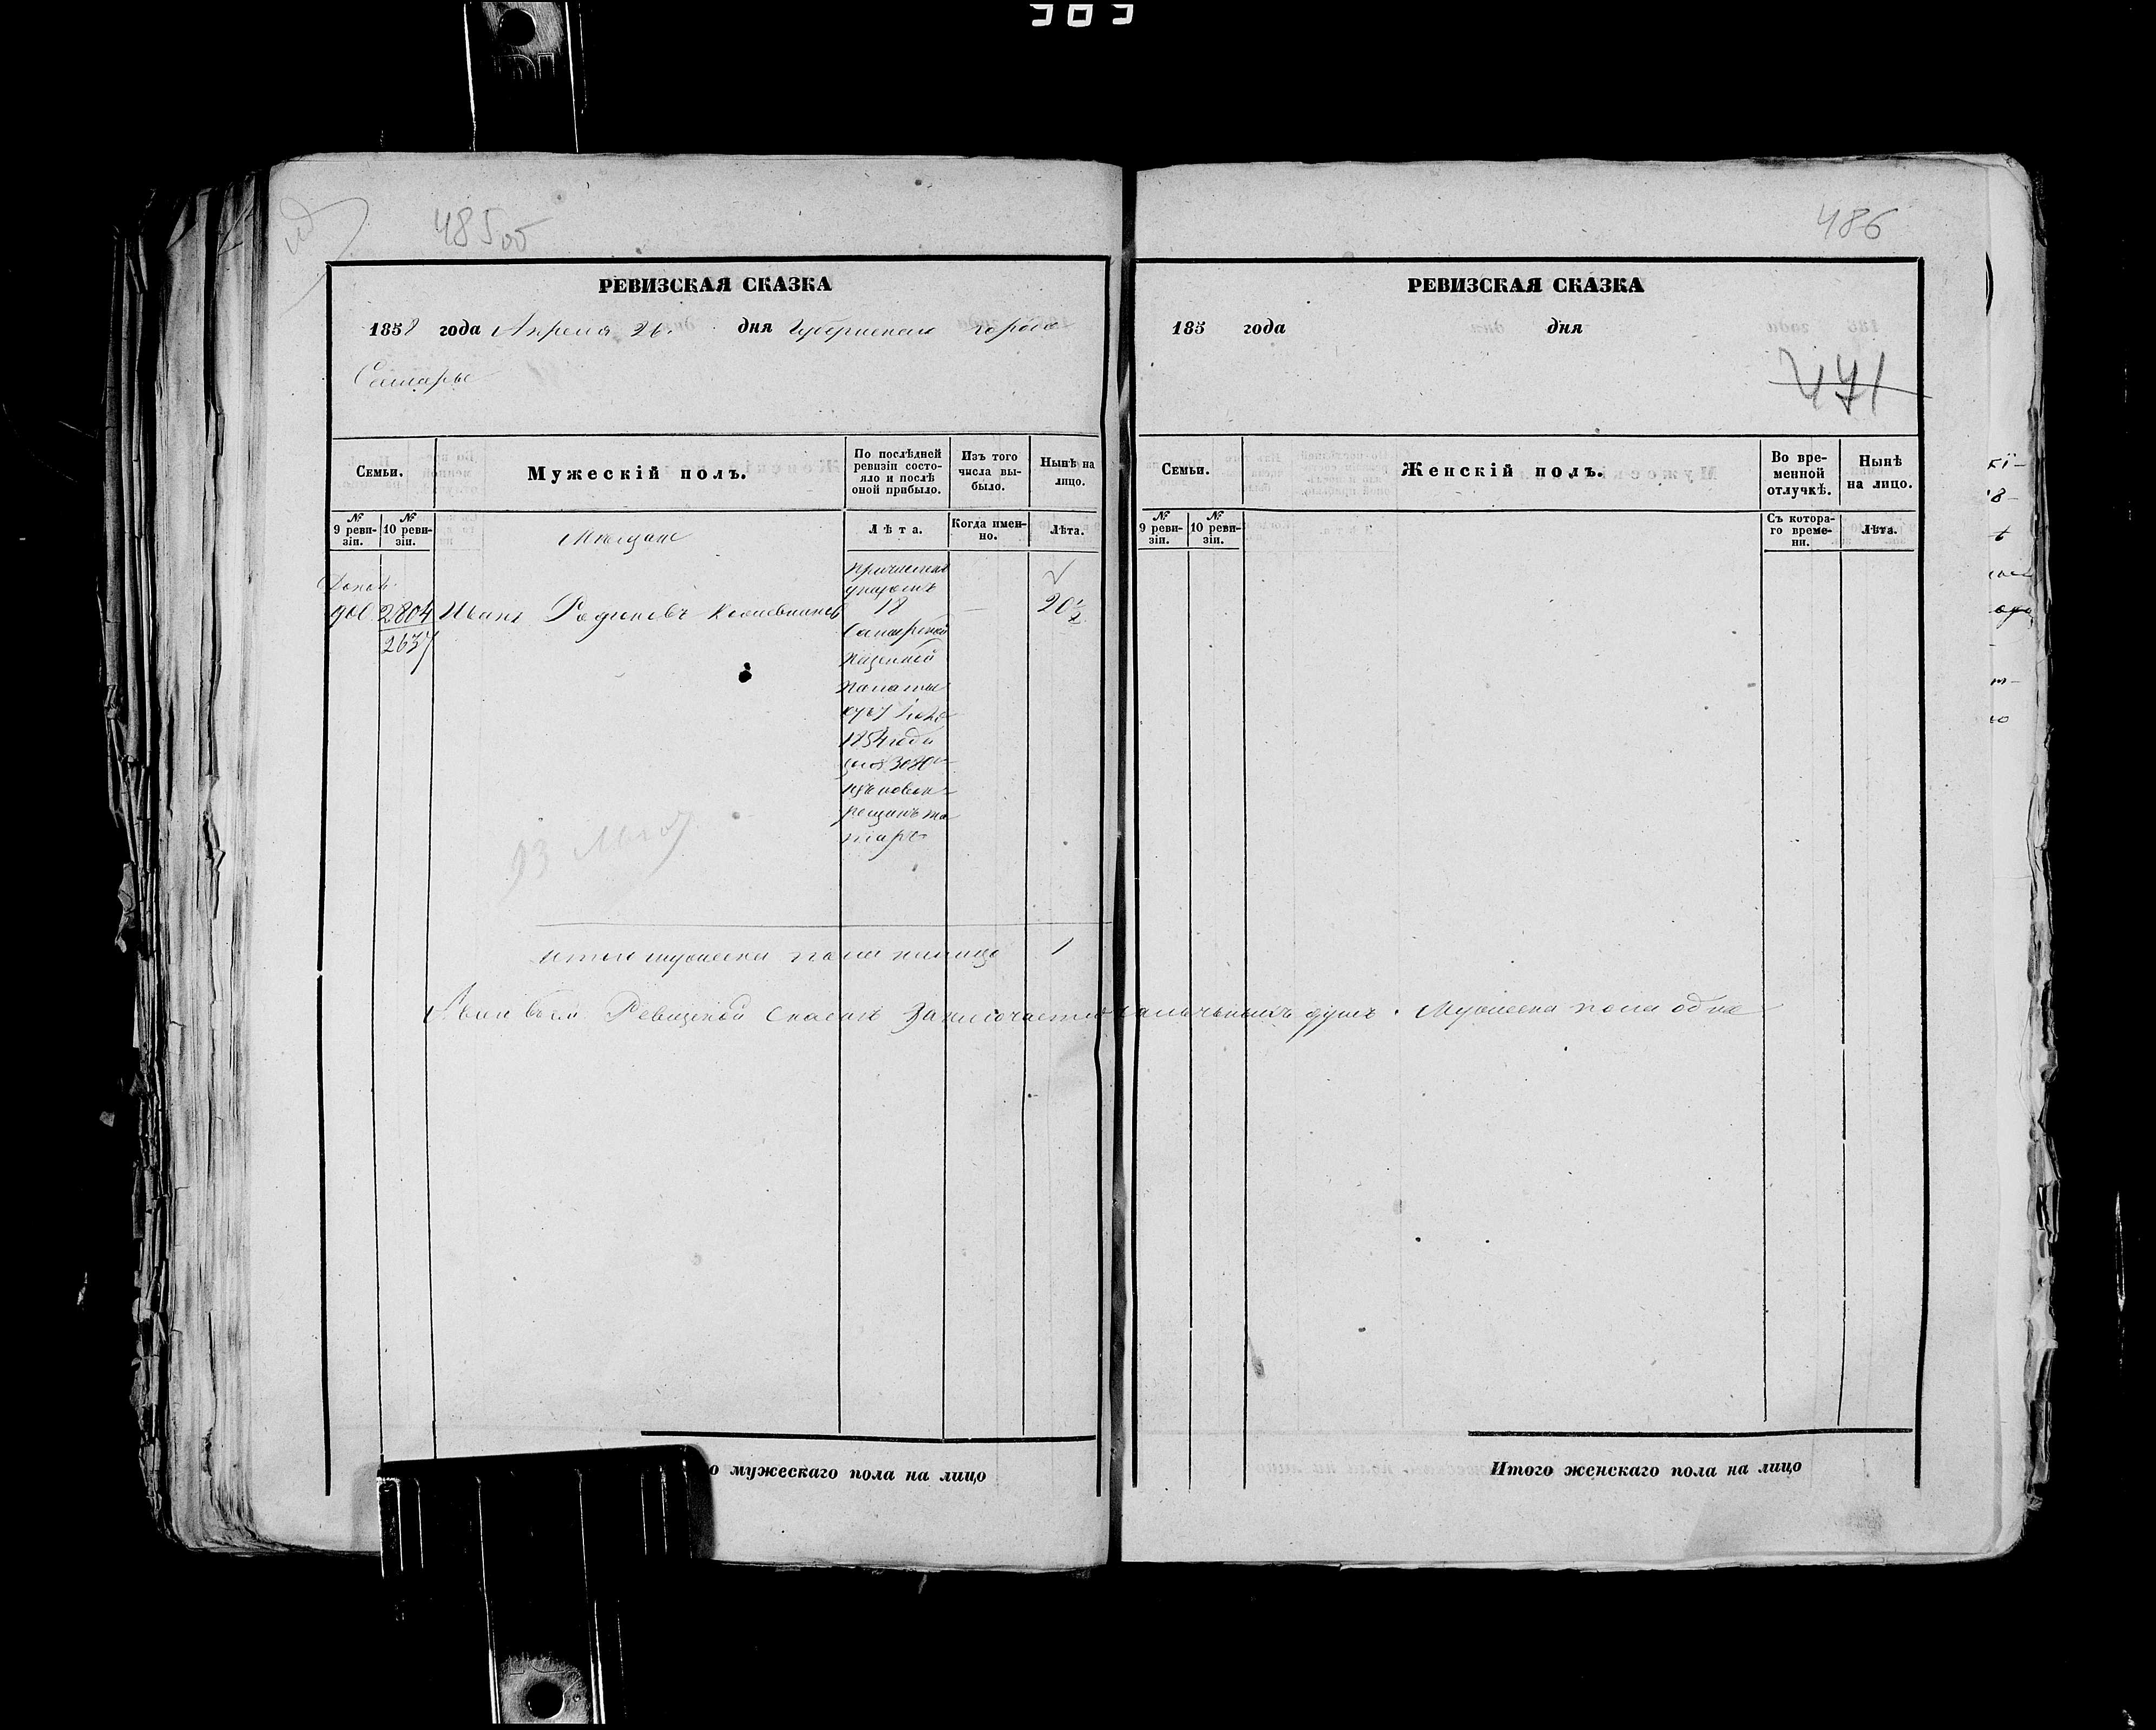 485 об
РЕВИЗСКАЯ СКАЗКА
1858 года Апреля 26. дня Губернскаго города
Самары
Семьи.
Мужескій полъ.
По послѣдней ревизіи состо-
яло и послѣ
оной прибыло.
Изъ того
числа вы-
было.
Нынѣ на
лицо.
№
9 реви-
зіи.
№
10 реви-
зіи.
Мѣщане
Лѣта.
Когда имен-
но.
Лѣта.
2804
2637
Иванъ Родионовъ
Причислен
указомъ
18
—
20 1/2
Самарской
Казенной
Палаты
1854 года
за № 3080
изъ новок-
рещенъ та
таръ
итого мужеска пола налицо 1
А всего въ сей Ревизской Сказкѣ заключается наличныхъ душъ. Мужеска пола одна
о мужескаго пола на лицо
486
РЕВИЗСКАЯ СКАЗКА
185 года дня
471
Семьи.
Женскій полъ.
Во вре-
менной
отлучкѣ.
Нынѣ
на лицо.
№
9 реви-
зіи.
№
10 реви-
зіи.
Съ котора-
го време-
ни.
Лѣта.
Итого женскаго пола на лицо